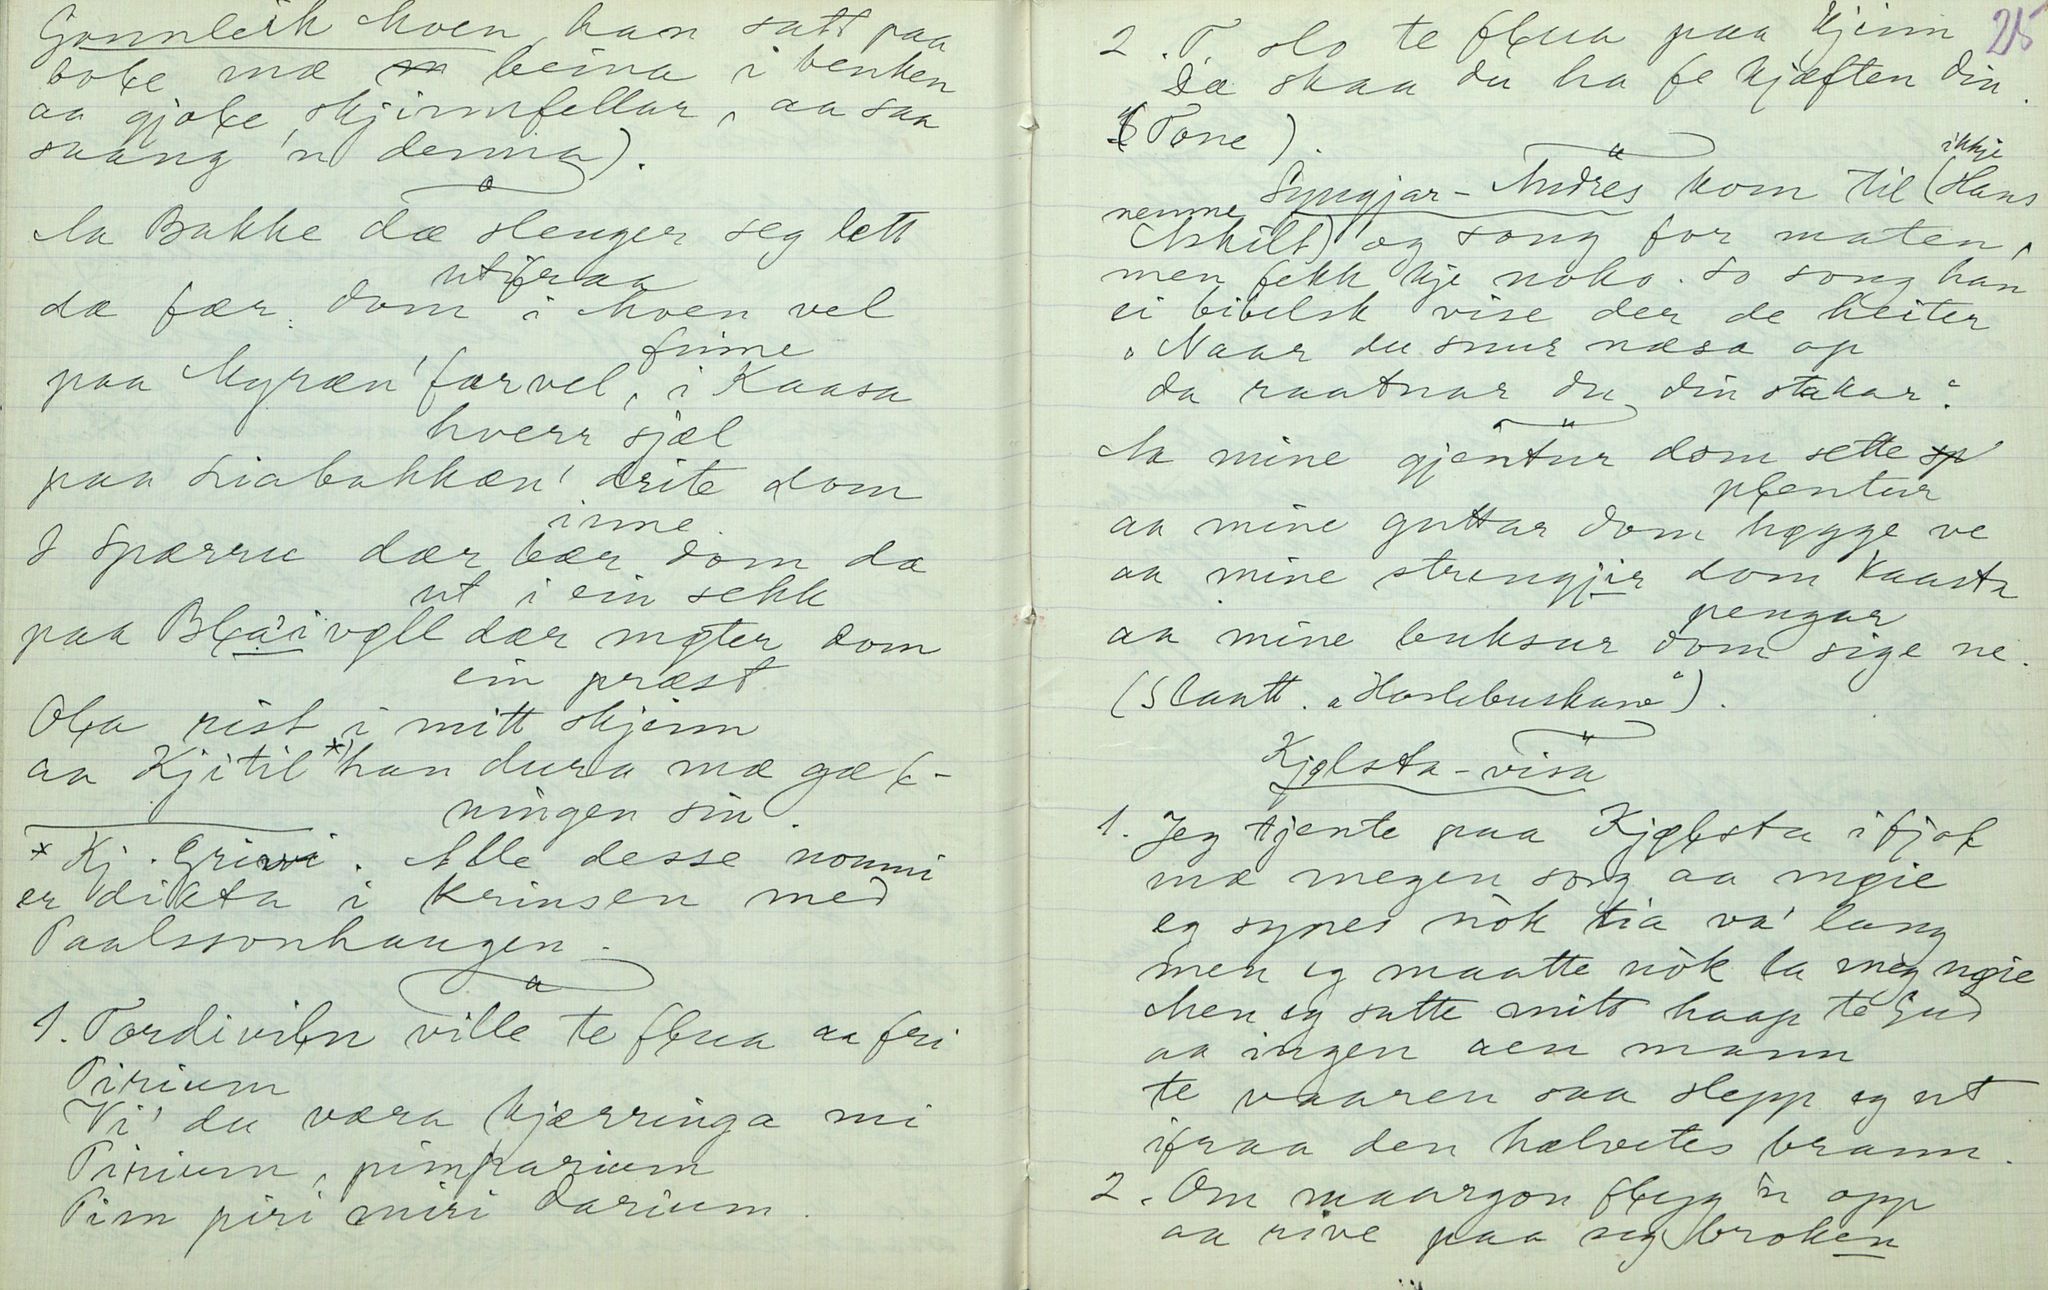 Gonnleik Moen han satt paa
bole mæ beina i benken
aa gjole skjinnfellar, aa saa
saang 'n denna).
Aa Bakke dæ slenger seg lett
utifraa
dæ fær dom i Moen vel
paa Myræn' farvel, i Kaasa
finne
hverr sjæl
paa Liabakkæn' drite dom
inne.
I Spærru dær bær dom da
ut i ein sekk
paa Blæivøll dær møter dom
ein præst
Ola rist i mitt skjinn
aa Kjitil *) han dura mæ gæl-
ningen sin.
* Kj. Grivi. Alle desse nommi
er dikta i krinsen med
Paalssonhaugen.
1. Tordiviln ville te flua aa fri
Pirium
Vi' du væra kjærringa mi
Pirium, pimparium
Pim piri miri darium.
25
2. T. slo te flua paa kjinn
Dæ skaa du ha fe kjæften din.
(Tone).
Syngjar-Andres kom til (Hans
ikkje
nemne
Askilt) og song for maten,
men fekk kje noko. So song han
ei bibelsk vise der de heiter
"Naar du snur næsa op
da raatnar du din stakar".
Aa mine gjentur dom sette
plentur
aa mine guttar dom høgge ve
aa mine strengjir dom kaasta
pengar
aa mine buksur dom sige ne.
(Slaatt. "Haslebuskane").
Kjølsta-visa
1. Jeg tjente paa Kjølsta i fjol
mæ megen sorg aa møie
eg synes nòk tia va' lang
men eg maatte nòk la meg nøie
Men eg satte mitt haap te Gud
aa ingen aen mann
te vaaren saa slepp eg ut
ifraa den hælvetes brann.
2. Om maargon fløyg 'n opp
aa rive paa seg broken